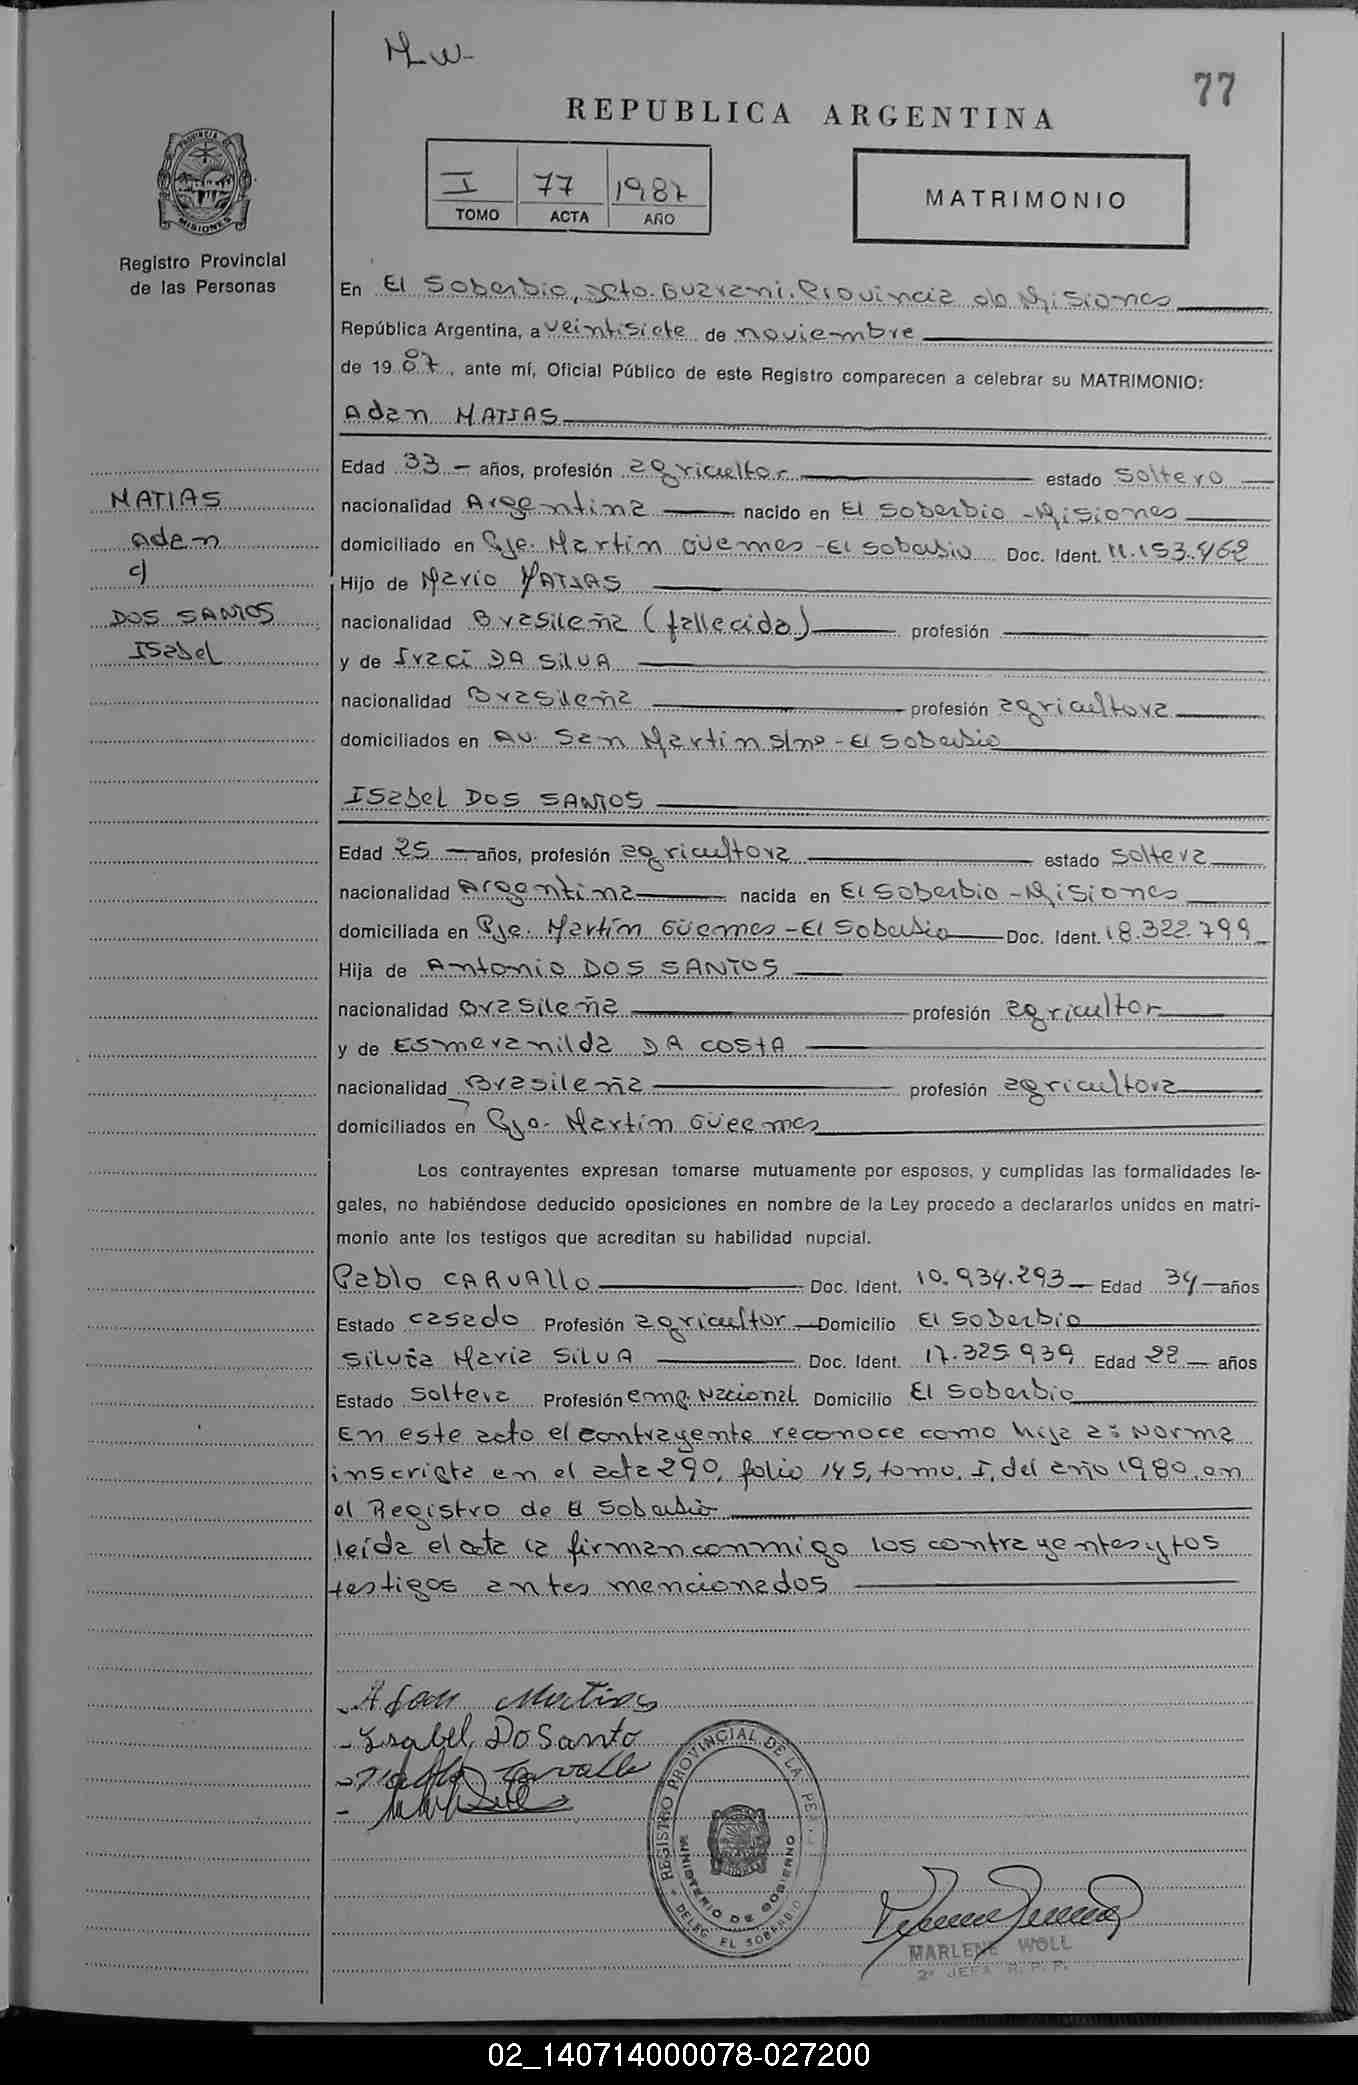 M W-
77
REPUBLICA ARGENTINA
PROVINCIA DE
MISIONES
Registro Provincial
de las Personas
I 77 1987
TOMO ACTA AÑO
MATRIMONIO
En El Soberbio, Dcto. Guarani. Provincia de Misiones
República Argentina, a veintisiete de noviembre
de 19 87, ante mí, Oficial Público de este Registro comparecen a celebrar su MATRIMONIO:
Adan MATIAS
Edad 33 - años, profesión agricultor estado soltero
MATIAS
Adan
c/
DOS SANTOS
Isabel
nacionalidad Argentina nacido en El Soberbio - Misiones
domiciliado en Pje. Martin Güemes - El Soberbio Doc. Ident. 11.153.462
Hijo de Mario MATIAS
nacionalidad Brasileña (fallecido) profesión
y de Iraci DA SILVA
nacionalidad Brasileña profesión agricultora
domiciliados en Av. San Martin s/nº - El Soberbio
Isabel DOS SANTOS
Edad 25 años, profesión agricultora estado soltera
nacionalidad Argentina nacida en El Soberbio - Misiones
domiciliada en Pje. Martín Güemes - El Soberbio Doc. Ident. 18.322.799
Hija de Antonio DOS SANTOS
nacionalidad Brasileña profesión agricultor
y de Esmeranilda DA COSTA
nacionalidad Brasileña profesión agricultora
domiciliados en Pje. Martín Güeemes
Los contrayentes expresan tomarse mutuamente por esposos, y cumplidas las formalidades le-
gales, no habiéndose deducido oposiciones en nombre de la Ley procedo a declararlos unidos en matri-
monio ante los testigos que acreditan su habilidad nupcial.
Pablo CARVALLO Doc. Ident. 10.934.293 Edad 34 años
Estado casado Profesión agricultor Domicilio El Soberbio
Silvia Maria SILVA Doc. Ident. 17.325.939 Edad 22 años
Estado soltera Profesión emp. Nacional Domicilio El Soberbio
En este acto el contrayente reconoce como hija a: Norma
inscripta en el acta 290, folio 145, tomo I, del año 1980, en
el Registro de El Soberbio
leída el acta la firman conmigo los contrayentes y los
testigos antes mencionados
- Adan Matias
- Isabel Do Santo
REGISTRO PROVINCIAL DE LA PE
MINISTERIO DE GOBIERNO
DELEG. EL SOBERBIO
MARLENE WOLL
2ª JEFA R. P. P.
02_140714000078-027200